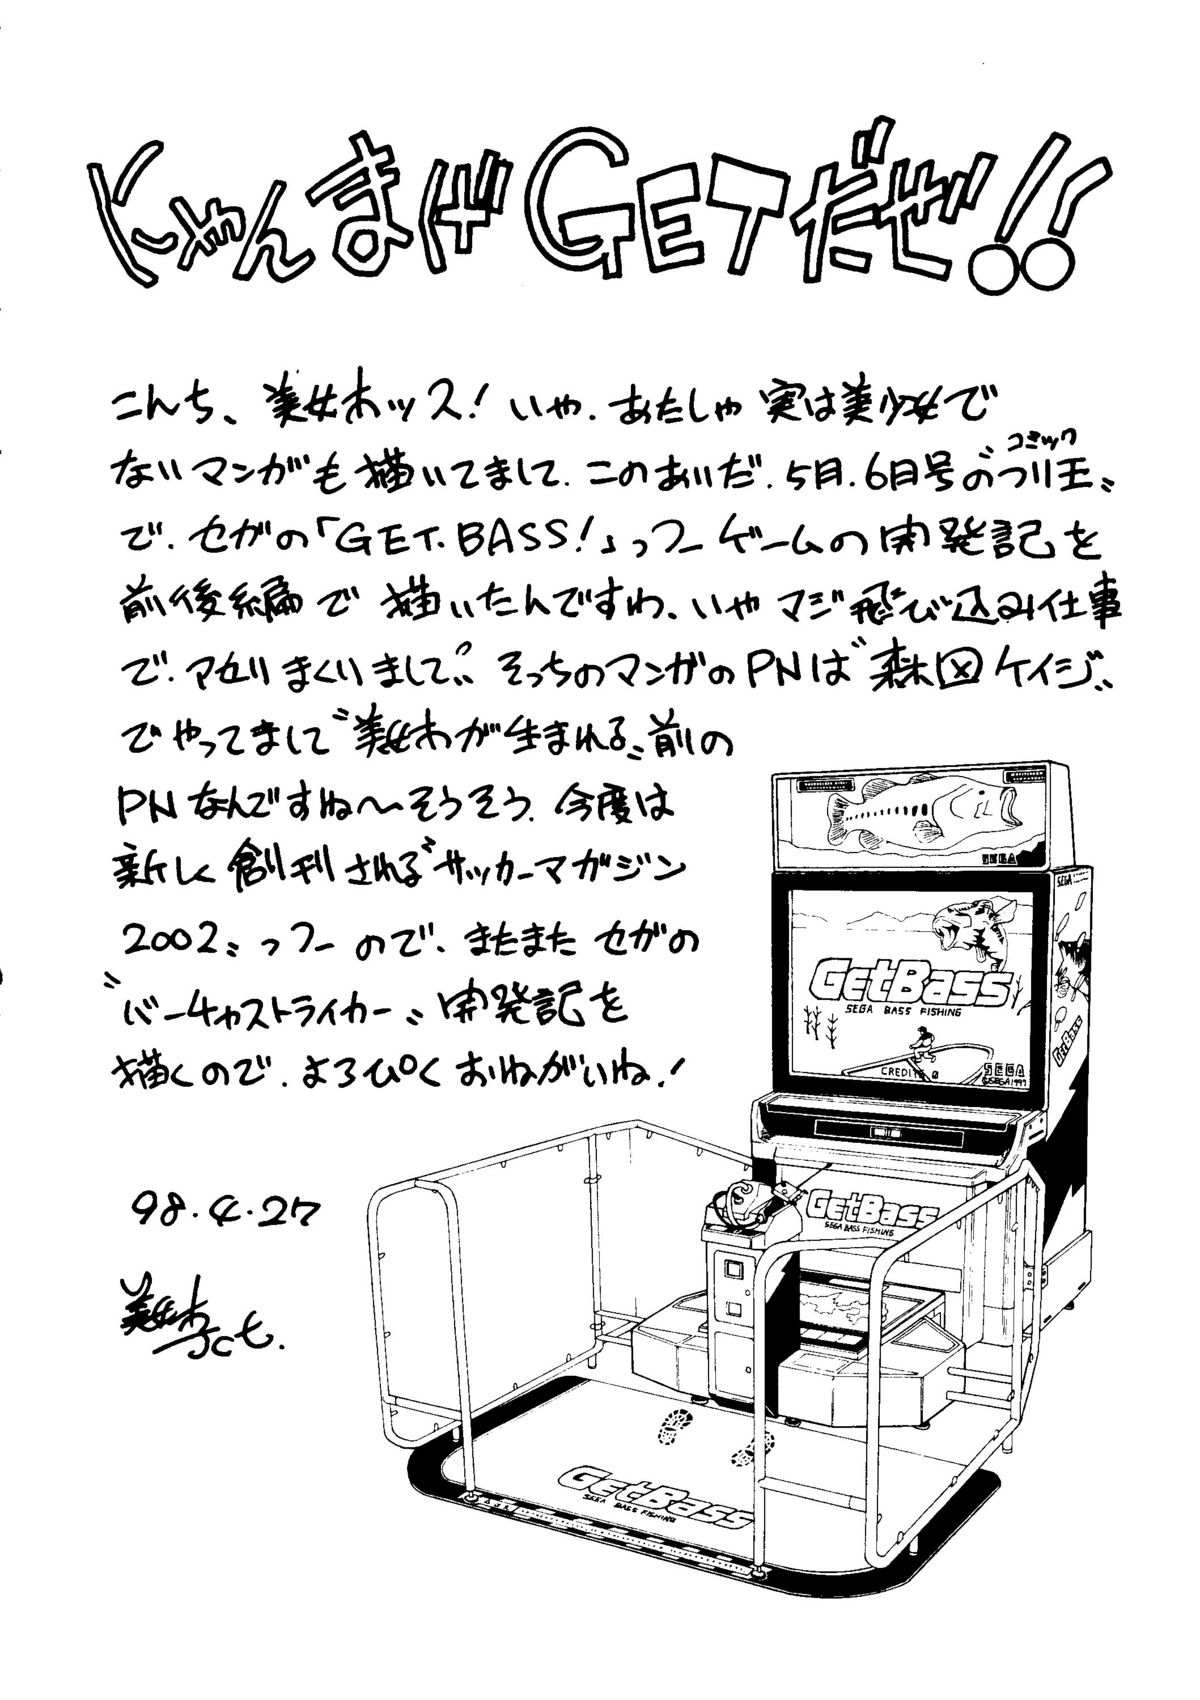 にゃんまげGETだぜ!!
こんち、美女木ッス! いや、あたしゃ実は美少女で
ないマンガも描いてまして、このあいだ、5月、6月号の〝つり王〟
コミック
で、セガの「GET.BASS!」っつーゲームの開発記を
前後編で描いたんですわ、いやマジ飛び込み仕事
で、アセりまくりまして。そっちのマンガのPNは〝森図ケイジ〟
でやってまして〝美女木が生まれる〟前の
PNなんですね〜そうそう、今度は
新しく創刊される〝サッカーマガジン
2002〟っつーので、またまたセガの
〝バーチャストライカー〟開発記を
描くので、よろぴくおねがいね!
98.4.27
美女木Jct.
SEGA
SEGA
GetBass
SEGA BASS FISHING
CREDITS 0
SEGA
©SEGA1997
GetBass
GetBass
SEGA BASS FISHING
GetBass
SEGA BASS FISHING